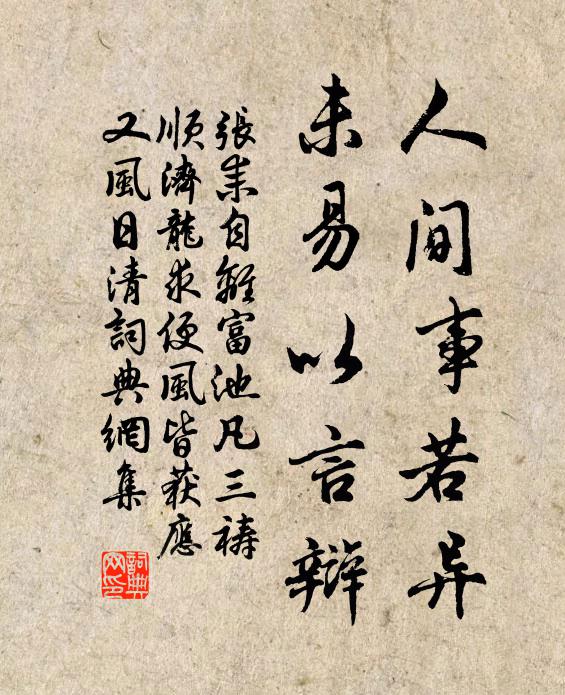 人間事若异
未易以言辯
張耒自離富池凡三禱
順濟龍求便風皆获應
又風日清詞典網集
詞典网印